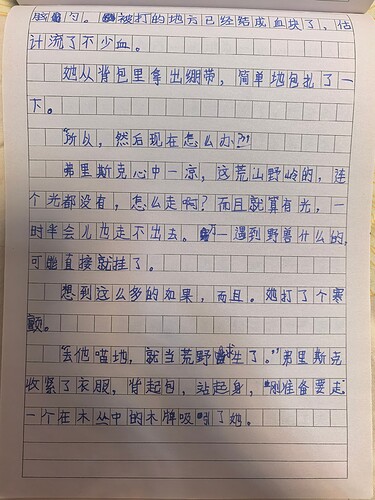 脑勺。被打的地方已经结成血块了，估
计流了不少血。
她从背包里拿出绷带，简单地包扎了一
下。
“所以，然后现在怎么办？”
弗里斯克心中一凉，这荒山野岭的，连
个光都没有，怎么走啊？而且就算有光，一
时半会儿也走不出去。万一遇到野兽什么的，
可能直接就挂了。
想到这么多的如果，而且。她打了个寒
颤。
“去他喵地，就当荒野求生了。”弗里斯克
收紧了衣服，背起包，站起身，刚准备要走
一个在木丛中的木牌吸引了她。